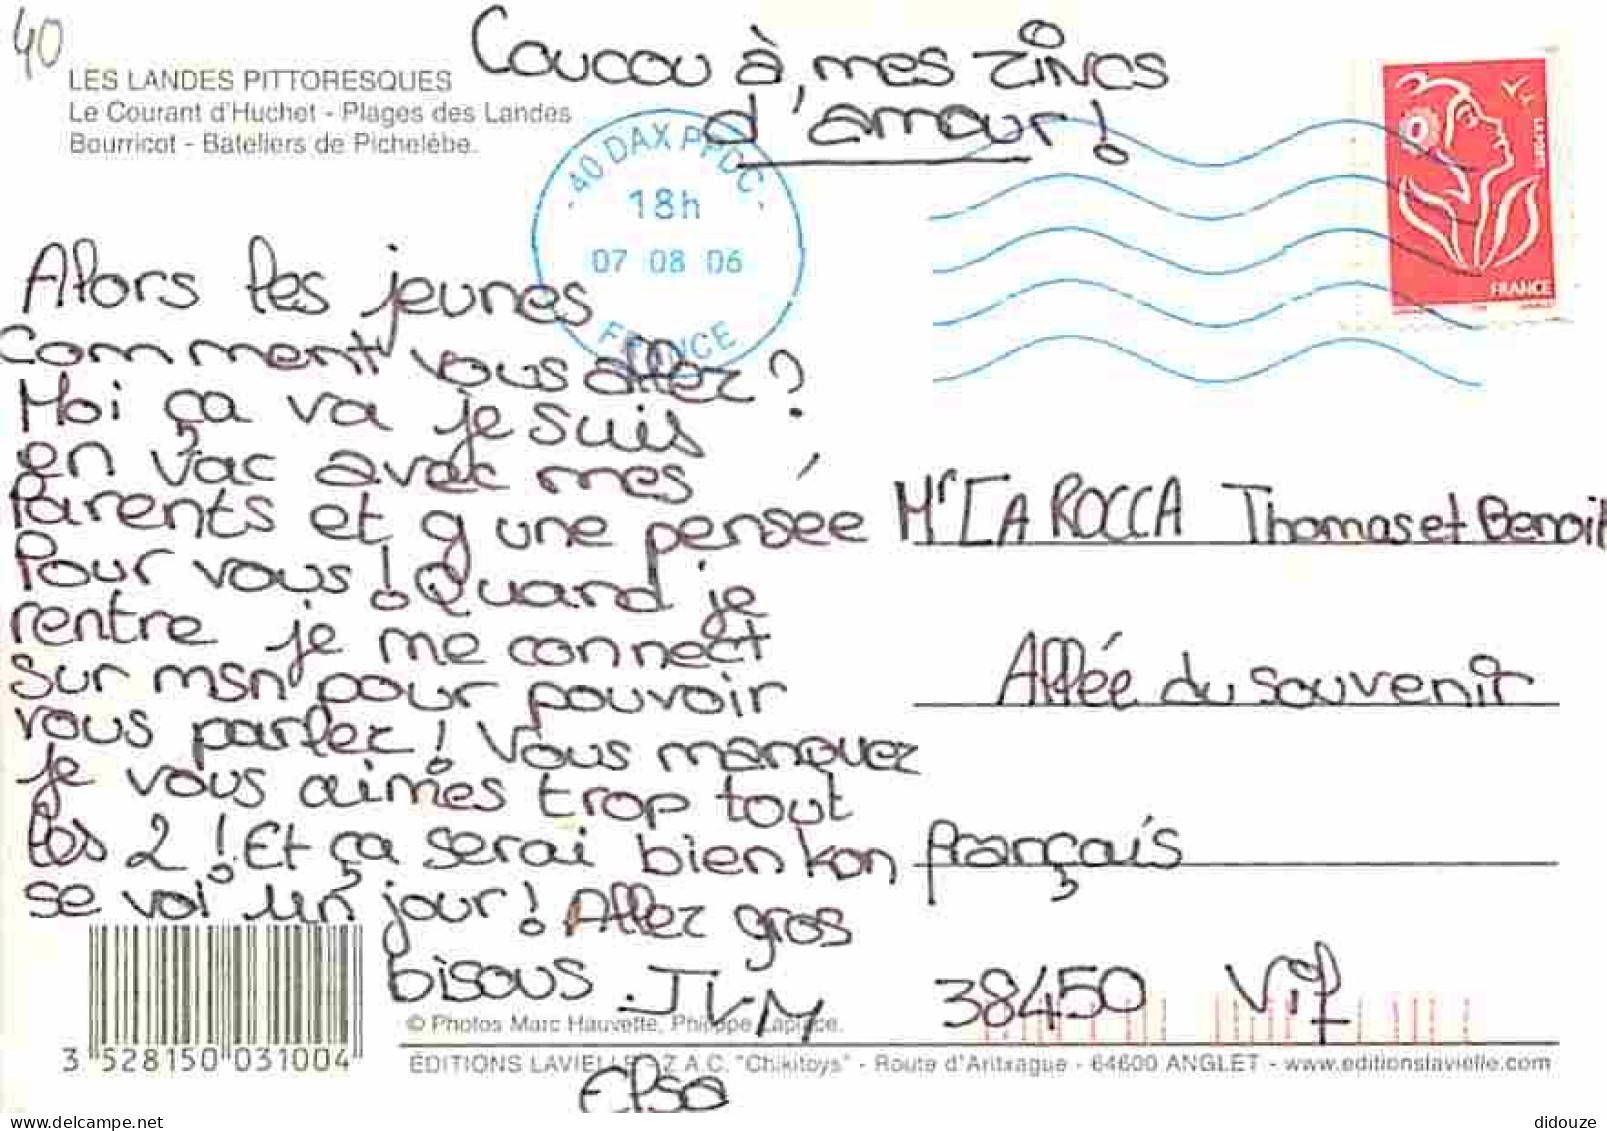 40
LES LANDES PITTORESQUES
Le Courant d'Huchet - Plages des Landes
Bourricot - Bateliers de Pichelèbe.
Coucou à mes zincs
d'amour!
40 DAX PPDC
18h
07 08 06
FRANCE
LA POSTE
FRANCE
Alors les jeunes
Comment vous allez?
Moi ça va je suis
en vac avec mes
Parents et g une pensée
Pour vous! Quand je
rentre je me connect
sur msn pour pouvoir
vous parlez! Vous manquez
je vous aimes trop tout
les 2! Et ça serai bien kon
se voi un jour! Allez gros
bisous. JVM
Elsa
Mr LA ROCCA Thomas et Benoit
Allée du souvenir
français
38450 Vif
3 528150 031004
© Photos Marc Hauvette, Philippe Laplace.
ÉDITIONS LAVIELLE - Z.A.C. "Chikitoys" - Route d'Aritxague - 64600 ANGLET - www.editionslavielle.com
didouze